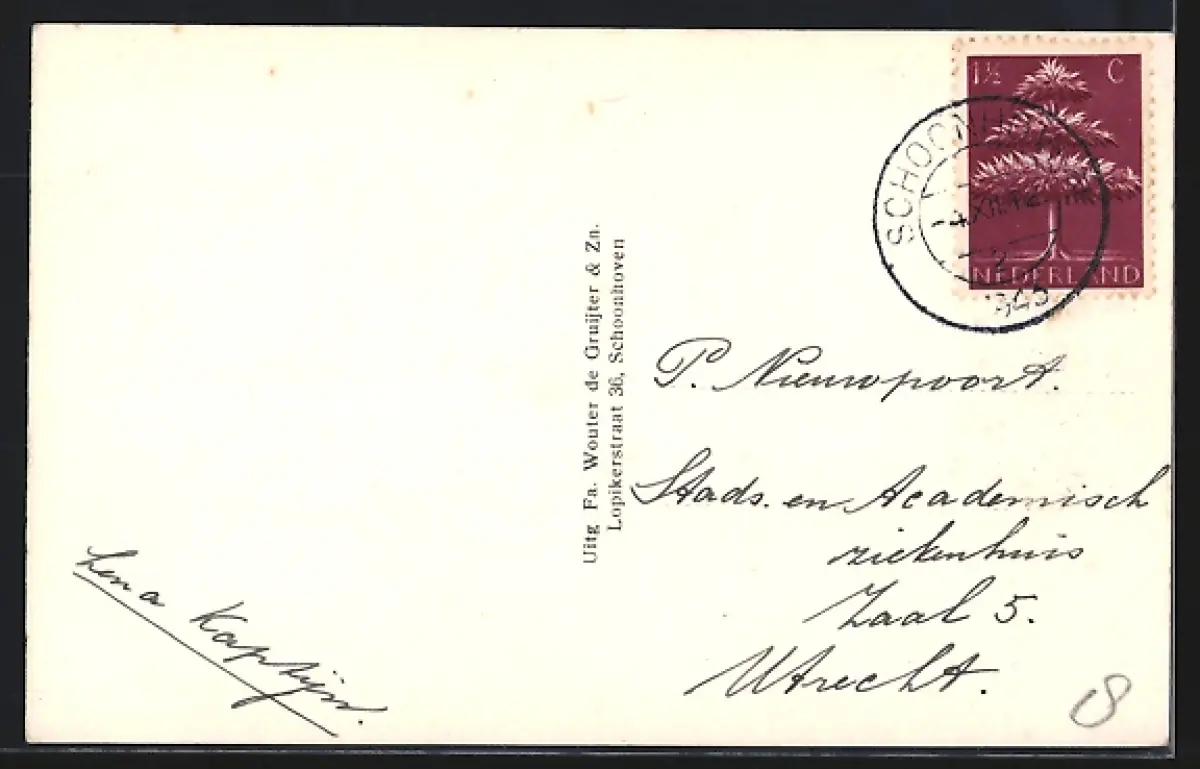 1½ C
NEDERLAND
SCHOONHO
1943
Uitg Fa. Wouter de Gruijter & Zn.
Lopikerstraat 36, Schoonhoven
P. Nieuwpoort.
Stads. en Academisch
ziekenhuis
Zaal 5.
Utrecht.
Lena Kaptijn.
8